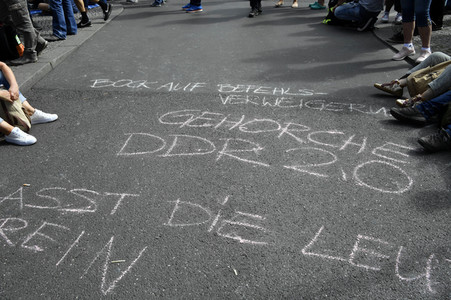 BOCK AUF BEFEHLS-
VERWEIGERUNG
GEHORCHE
DDR 2.0
LASST DIE LEU
REIN